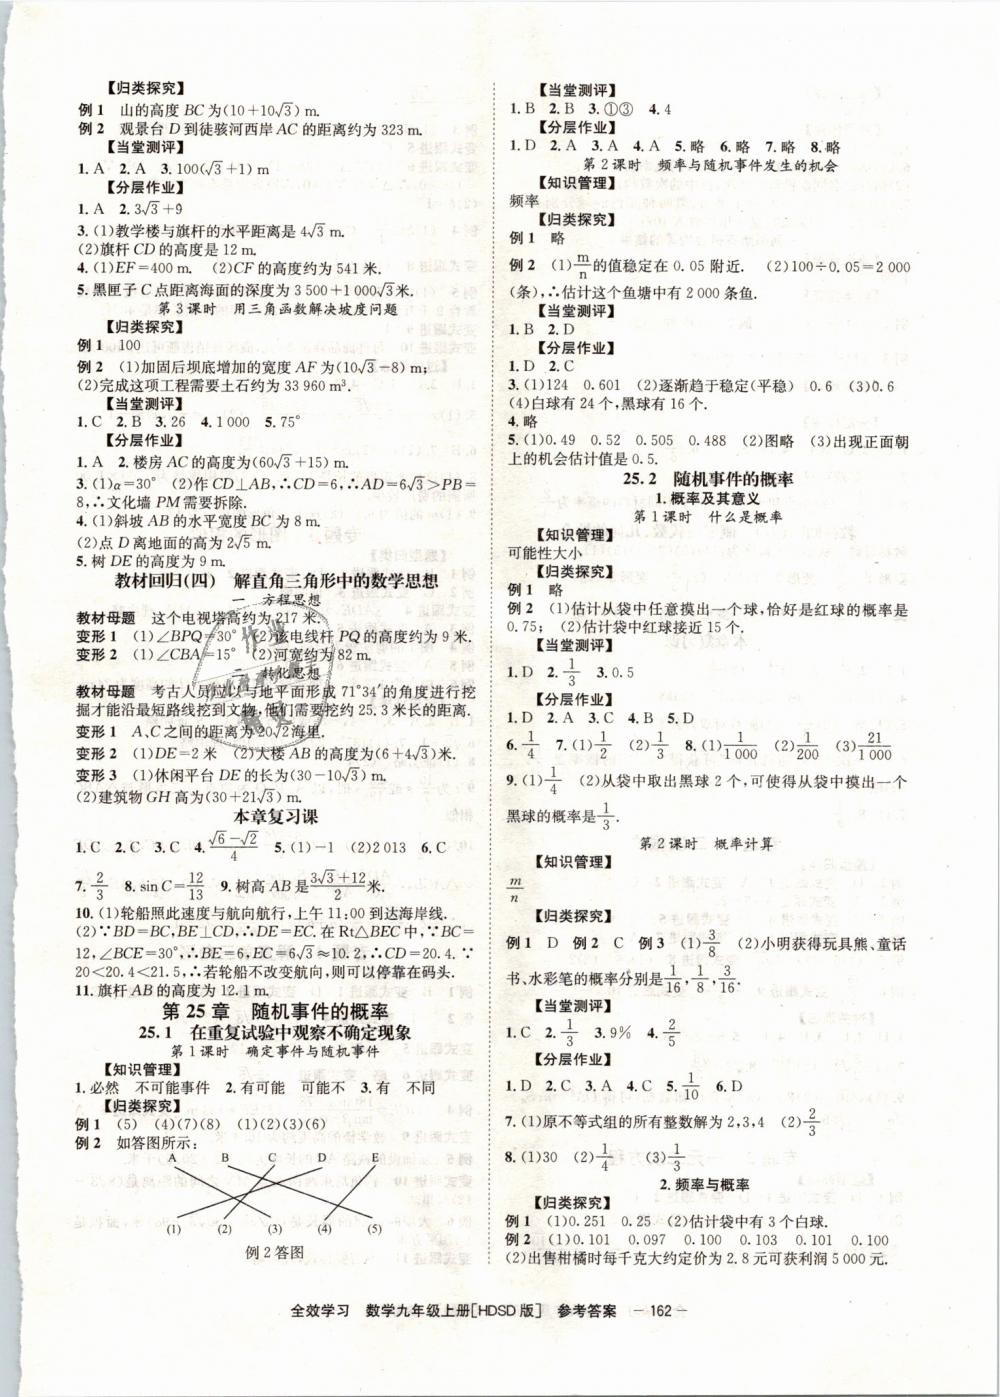 【归类探究】
例 1　山的高度 BC 为(10+10√3) m.
例 2　观景台 D 到徒骇河西岸 AC 的距离约为 323 m.
【当堂测评】
1. A　2. A　3. 100(√3+1) m
【分层作业】
1. A　2. 3√3+9
3. (1)教学楼与旗杆的水平距离是 4√3 m.
(2)旗杆 CD 的高度是 12 m.
4. (1)EF=400 m.　(2)CF 的高度约为 541 米.
5. 黑匣子 C 点距离海面的深度为 3 500+1 000√3米.
第 3 课时　用三角函数解决坡度问题
【归类探究】
例 1　100
例 2　(1)加固后坝底增加的宽度 AF 为(10√3-8) m;
(2)完成这项工程需要土石约为 33 960 m³.
【当堂测评】
1. C　2. B　3. 26　4. 1 000　5. 75°
【分层作业】
1. A　2. 楼房 AC 的高度为(60√3+15) m.
3. (1)α=30°　(2)作 CD⊥AB,∴CD=6,∴AD=6√3>PB=
8,∴文化墙 PM 需要拆除.
4. (1)斜坡 AB 的水平宽度 BC 为 8 m.
(2)点 D 离地面的高为 2√5 m.
5. 树 DE 的高度为 9 m.
教材回归(四)　解直角三角形中的数学思想
一　方程思想
教材母题　这个电视塔高约为 217 米.
变形 1　(1)∠BPQ=30°　(2)该电线杆 PQ 的高度约为 9 米.
变形 2　(1)∠CBA=15°　(2)河宽约为 82 m.
二　转化思想
教材母题　考古人员应以与地平面形成 71°34′的角度进行挖
掘才能沿最短路线挖到文物,他们需要挖约 25.3 米长的距离.
变形 1　A、C 之间的距离为 20√2海里.
变形 2　(1)DE=2 米　(2)大楼 AB 的高度为(6+4√3)米.
变形 3　(1)休闲平台 DE 的长为(30-10√3)米.
(2)建筑物 GH 高为(30+21√3) m.
本章复习课
1. C　2. C　3. C　4. (√6-√2)/4　5. (1)-1　(2)2 013　6. C
7. 2/3　8. sin C=12/13　9. 树高 AB 是(3√3+12)/2米.
10. (1)轮船照此速度与航向航行,上午 11:00 到达海岸线.
(2)∵BD=BC,BE⊥CD,∴DE=EC. 在 Rt△BEC 中,∵BC=
12,∠BCE=30°,∴BE=6,EC=6√3≈10.2,∴CD=20.4. ∵
20<20.4<21.5,∴若轮船不改变航向,则可以停靠在码头.
11. 旗杆 AB 的高度为 12.1 m.
第 25 章　随机事件的概率
25.1　在重复试验中观察不确定现象
第 1 课时　确定事件与随机事件
【知识管理】
1. 必然　不可能事件　2. 有可能　可能不　3. 有　不同
【归类探究】
例 1　(5)　(4)(7)(8)　(1)(2)(3)(6)
例 2　如答图所示:
A　B　C　D　E
(1)　(2)　(3)　(4)　(5)
例 2 答图
【当堂测评】
1. B　2. B　3. ①③　4. 4
【分层作业】
1. D　2. A　3. A　4. A　5. 略　6. 略　7. 略　8. 略
第 2 课时　频率与随机事件发生的机会
【知识管理】
频率
【归类探究】
例 1　略
例 2　(1)m/n的值稳定在 0.05 附近.　(2)100÷0.05=2 000
(条),∴估计这个鱼塘中有 2 000 条鱼.
【当堂测评】
1. B　2. D
【分层作业】
1. D　2. C
3. (1)124　0.601　(2)逐渐趋于稳定(平稳)　0.6　(3)0.6
(4)白球有 24 个,黑球有 16 个.
4. 略
5. (1)0.49　0.52　0.505　0.488　(2)图略　(3)出现正面朝
上的机会估计值是 0.5.
25.2　随机事件的概率
1. 概率及其意义
第 1 课时　什么是概率
【知识管理】
可能性大小
【归类探究】
例 1　略
例 2　(1)估计从袋中任意摸出一个球,恰好是红球的概率是
0.75;　(2)估计袋中红球接近 15 个.
【当堂测评】
1. D　2. 1/3　3. 0.5
【分层作业】
1. D　2. A　3. C　4. B　5. D
6. 1/4　7. (1)1/2　(2)1/3　8. (1)1/1 000　(2)1/200　(3)21/1 000
9. (1)1/4　(2)从袋中取出黑球 2 个,可使得从袋中摸出一个
黑球的概率是1/3.
第 2 课时　概率计算
【知识管理】
m/n
【归类探究】
例 1　D　例 2　C　例 3　(1)3/8　(2)小明获得玩具熊、童话
书、水彩笔的概率分别是1/16,1/8,3/16.
【当堂测评】
1. C　2. 1/3　3. 9%　4. 2/5
【分层作业】
1. D　2. C　3. A　4. C　5. 1/10　6. D
7. (1)原不等式组的所有整数解为 2,3,4　(2)2/3
8. (1)30　(2)1/4　(3)1/3
2. 频率与概率
【归类探究】
例 1　(1)0.251　0.25　(2)估计袋中有 3 个白球.
例 2　(1)0.101　0.097　0.100　0.103　0.101　0.100
(2)出售柑橘时每千克大约定价为 2.8 元可获利润 5 000 元.
全效学习　数学九年级上册[HDSD 版]　参考答案　—162—